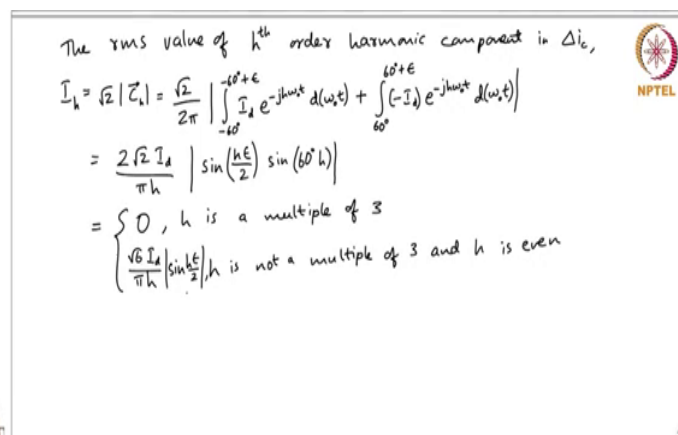 The rms value of hᵗʰ order harmonic component in Δi_c,
I_h = √2 |C̄_h| = √2/2π | ∫_{-60°}^{-60°+ϵ} I_d e^{-jhω₀t} d(ω₀t) + ∫_{60°}^{60°+ϵ} (-I_d) e^{-jhω₀t} d(ω₀t) |
NPTEL
= 2√2 I_d/πh | sin(hϵ/2) sin(60° h) |
= { 0, h is a multiple of 3
√6 I_d/πh |sin hϵ/2|, h is not a multiple of 3 and h is even